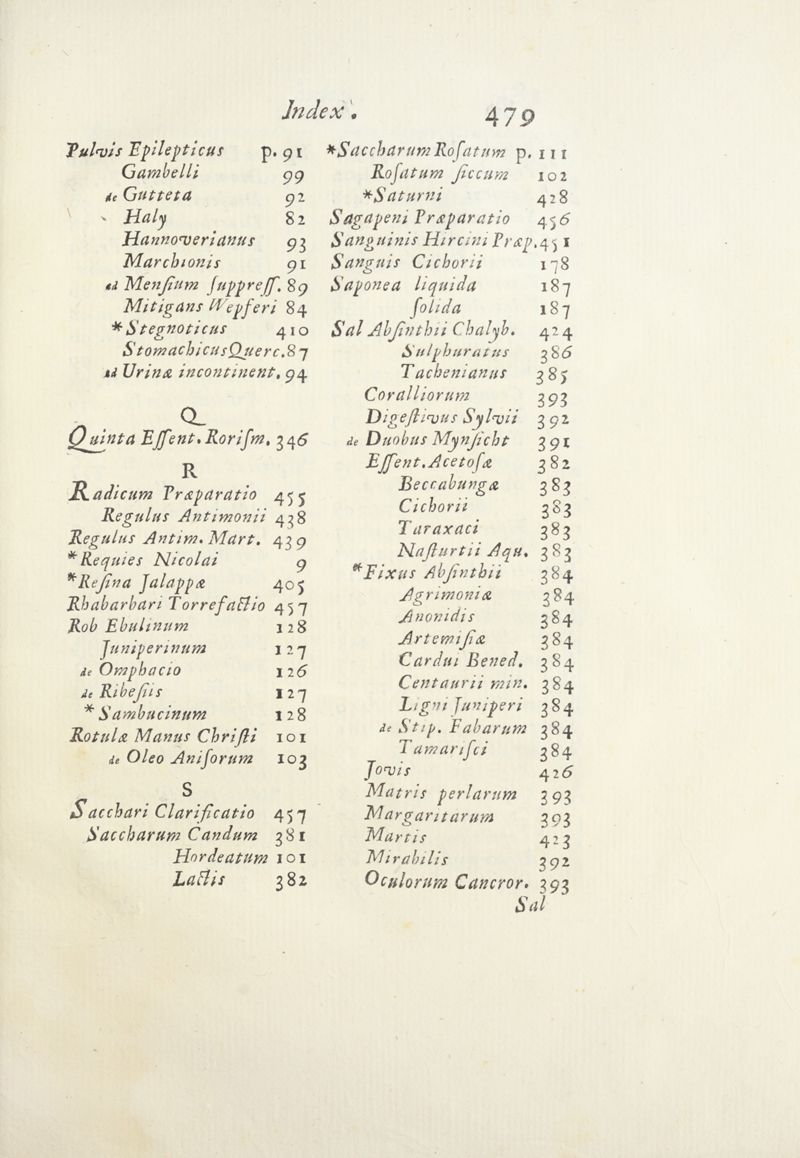 Index. 479
Pulvis Epilepticus p. 91
Gambelli 99
de Gutteta 92
Haly 82
Hannoverianus 93
Marchionis 91
ad Menſium ſuppreſſ. 89
Mitigans Wepferi 84
* Stegnoticus 410
StomachicusQuerc.87
ad Urinæ incontinent. 94
Q
Quinta Eſſent. Roriſm. 346
R
Radicum Præparatio 455
Regulus Antimonii 438
Regulus Antim. Mart. 439
* Requies Nicolai 9
* Reſina Jalappæ 405
Rhabarbari Torrefactio 457
Rob Ebulinum 128
Juniperinum 127
de Omphacio 126
de Ribeſiis 127
* Sambucinum 128
Rotulæ Manus Chriſti 101
de Oleo Aniſorum 103
S
Sacchari Clarificatio 457
Saccharum Candum 381
Hordeatum 101
Lactis 382
*Saccharum Roſatum p. 111
Roſatum ſiccum 102
*Saturni 428
Sagapeni Præparatio 456
Sanguinis Hircini Præp.451
Sanguis Cichorii 178
Saponea liquida 187
ſolida 187
Sal Abſinthii Chalyb. 424
Sulphuratus 386
Tachenianus 385
Coralliorum 393
Digeſtivus Sylvii 392
de Duobus Mynſicht 391
Eſſent. Acetoſæ 382
Beccabungæ 383
Cichorii 383
Taraxaci 383
Naſturtii Aqu. 383
*Fixus Abſinthii 384
Agrimoniæ 384
Anonidis 384
Artemiſiæ 384
Cardui Bened. 384
Centaurii min. 384
Ligni Juniperi 384
de Stip. Fabarum 384
Tamariſci 384
Jovis 426
Matris perlarum 393
Margaritarum 393
Martis 423
Mirabilis 392
Oculorum Cancror. 393
Sal